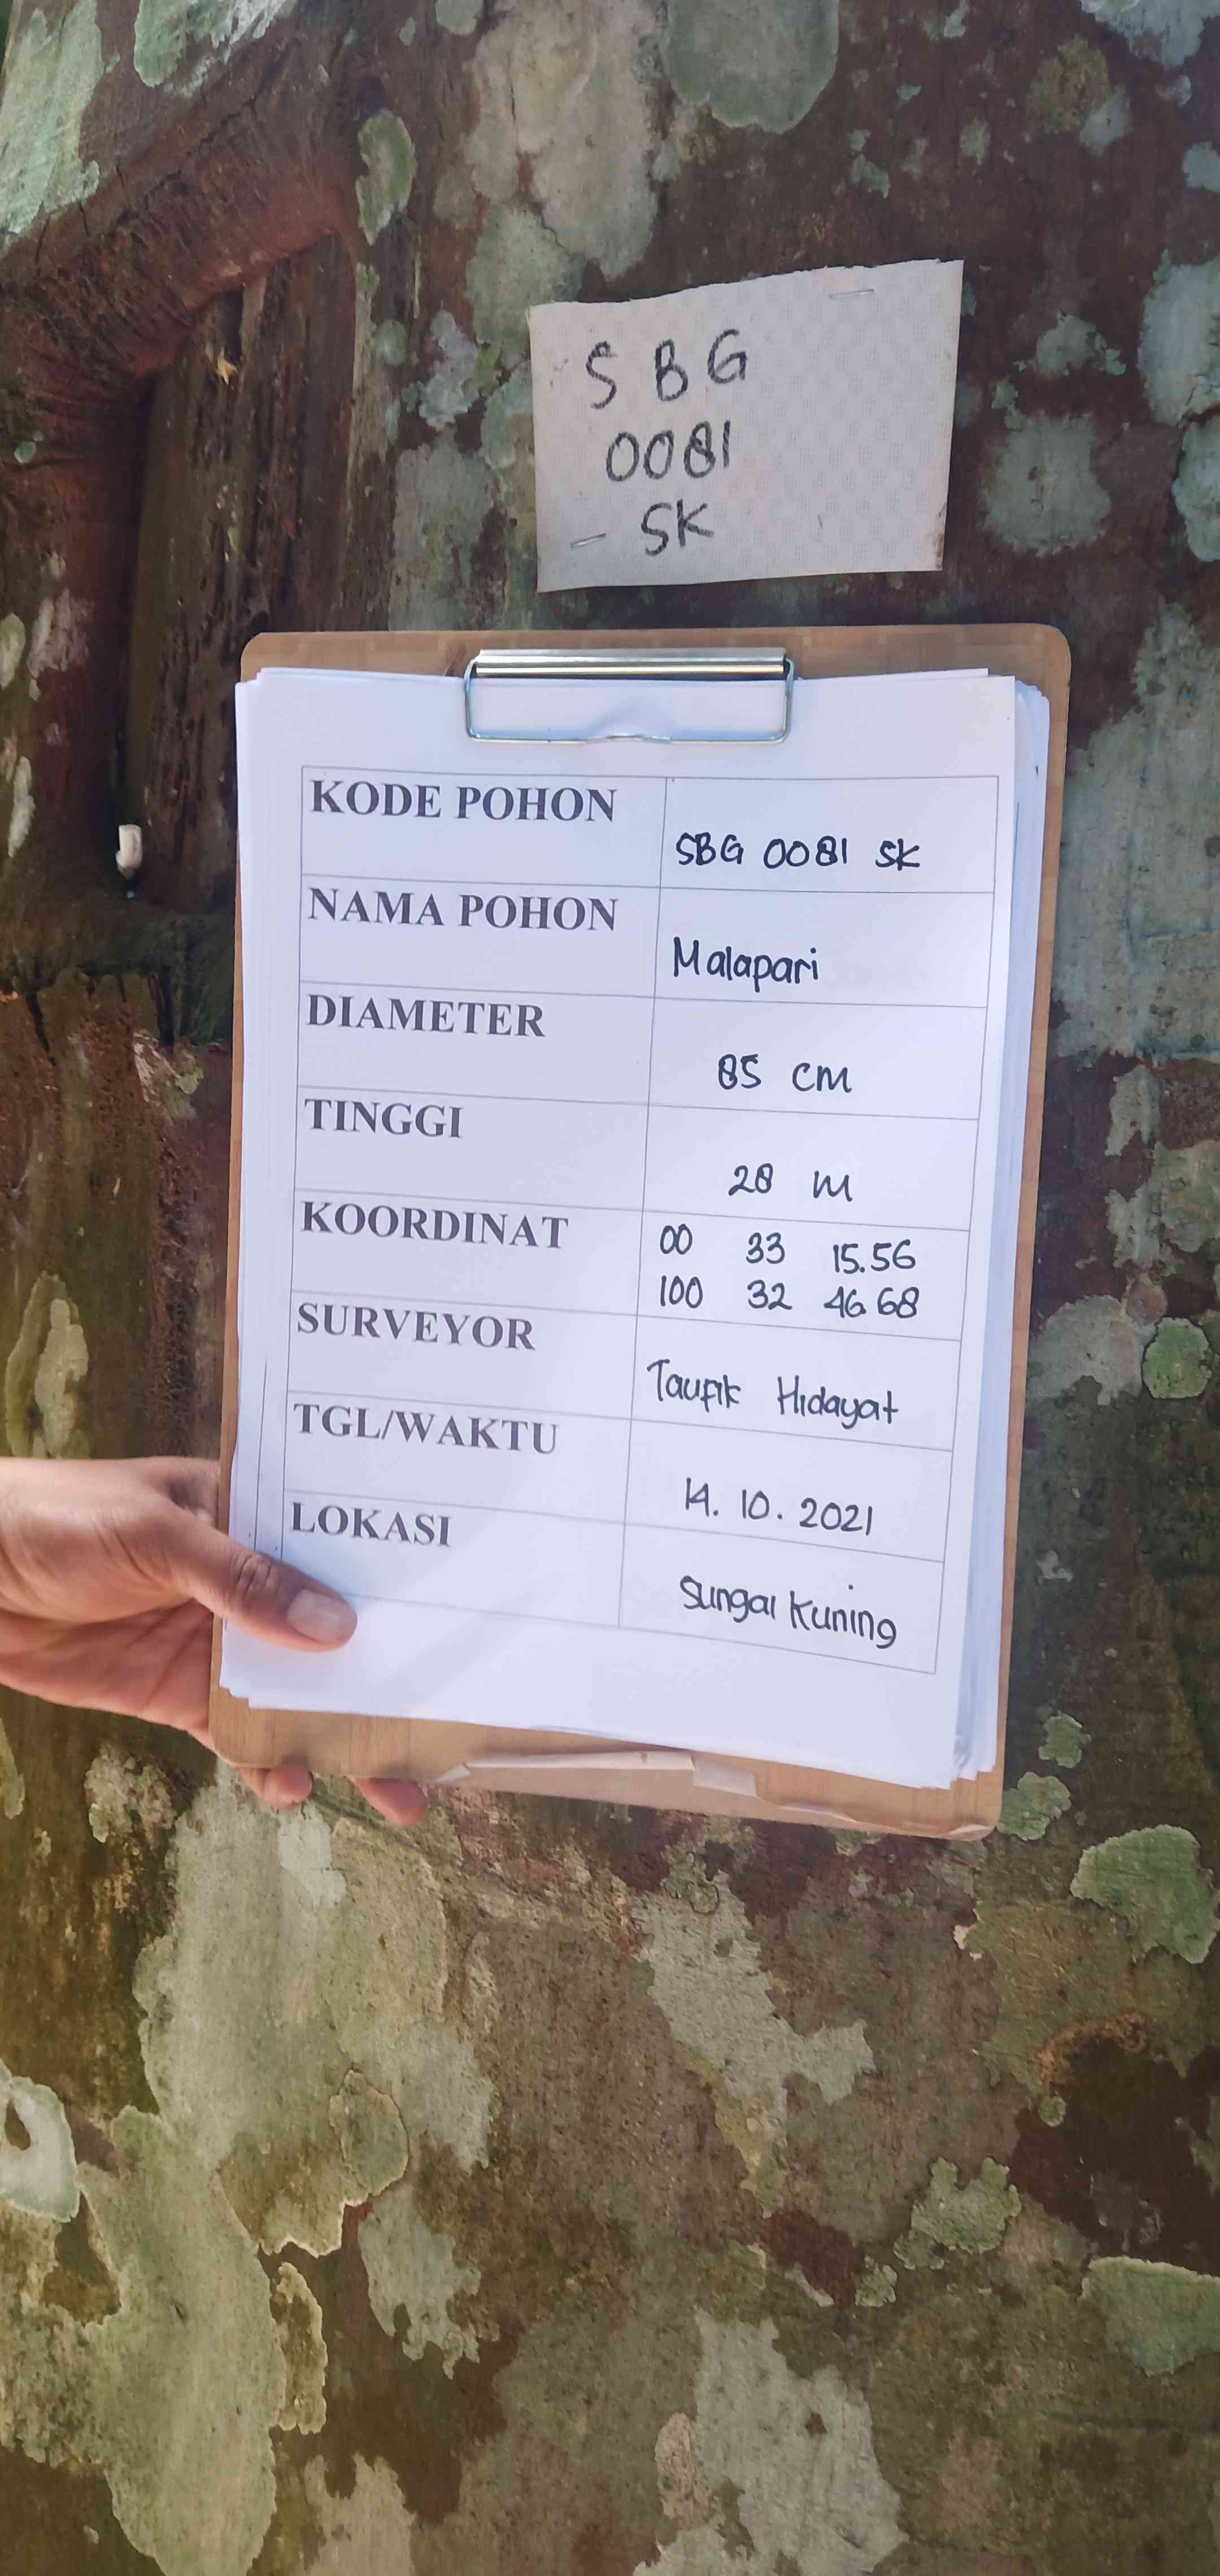 SBG
0081
SK
KODE POHON
SBG 0081 SK
NAMA POHON
Malapari
DIAMETER
85 cm
TINGGI
28 m
KOORDINAT
00 33 15.56
100 32 46 68
SURVEYOR
Taufik Hidayat
TGL/WAKTU
14. 10. 2021
LOKASI
Sungai Kuning